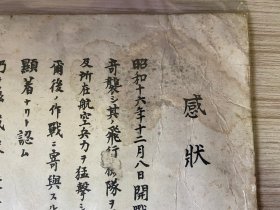 感狀
昭和十六年十二月八日開戰
奇襲シ其飛行隊ヲ
及所在航空兵力ヲ猛擊シ
爾後ノ作戰ニ寄與スル
顯著ナリト認ム